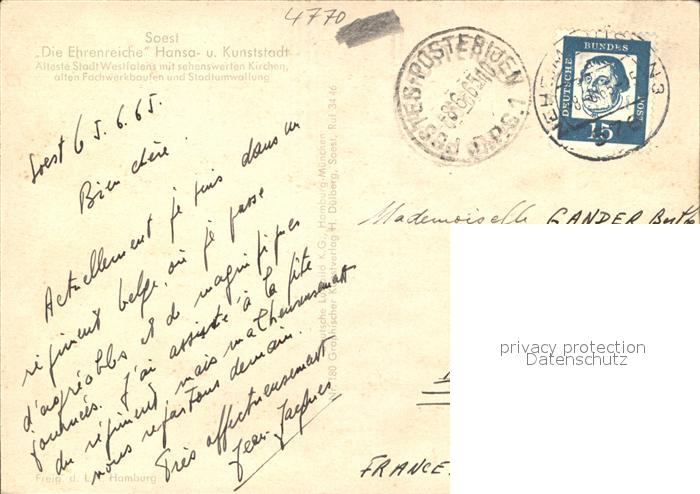 4770
Soest
„Die Ehrenreiche" Hansa- u. Kunststadt
Älteste Stadt Westfalens mit sehenswerten Kirchen,
alten Fachwerkbauten und Stadtumwallung
POSTES-POSTERIJEN
B.P.S.1
DEUTSCHE BUNDESPOST
15
Soest 6 5.6.65.
Bien chère
Actuellement je suis dans un
régiment belge, où je passe
d'agréables et de magnifiques
journées. J'ai assisté à la fête
du régiment, mais malheureusement
nous repartons demain.
Très affectueusement
Jean-Jacques
Mademoiselle GANDER Berthe
FRANCE.
K.G., Hamburg-München
H. Dülberg, Soest, Ruf 3446
Hamburg
privacy protection
Datenschutz